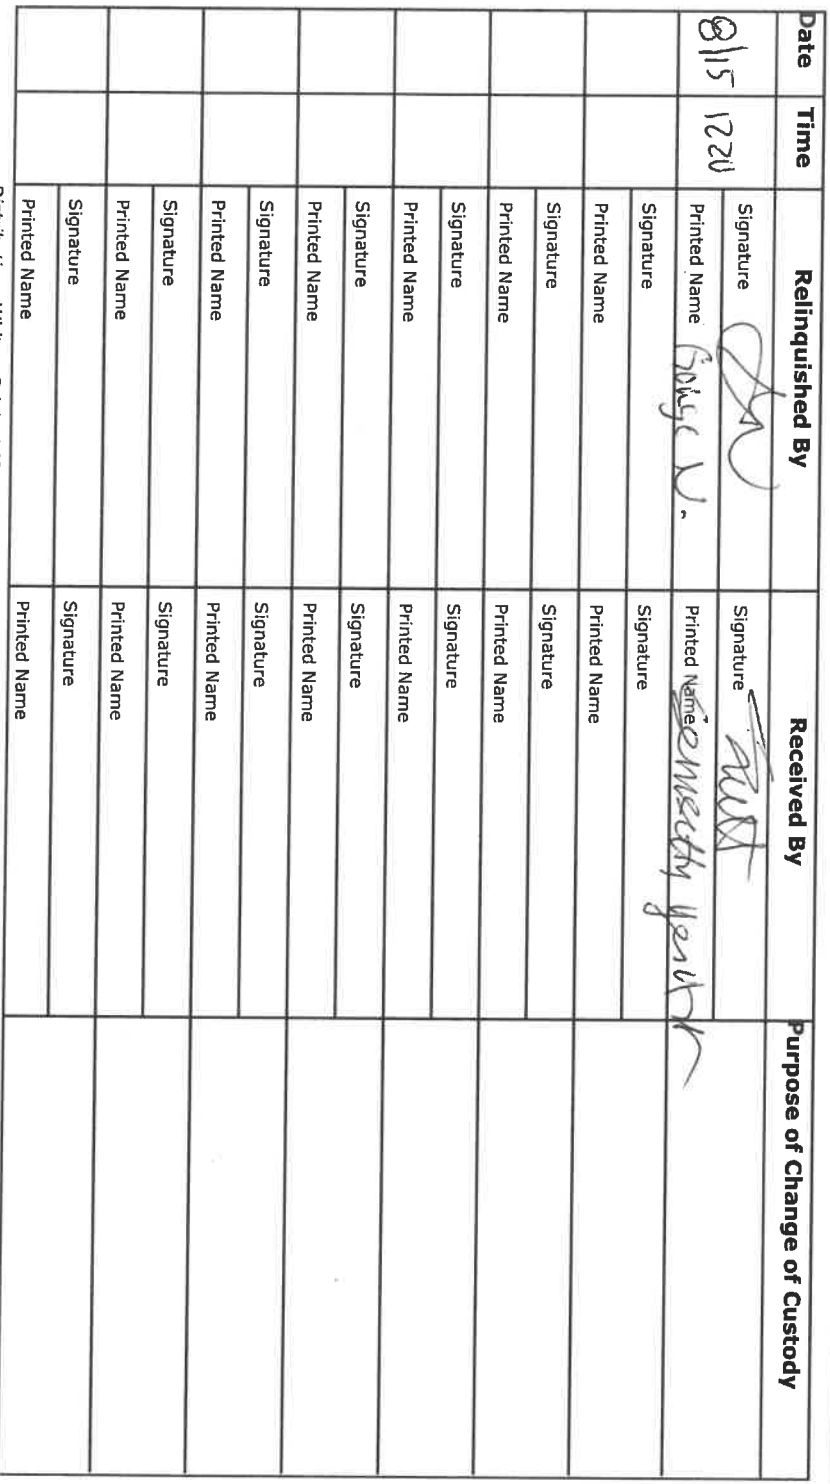 Date Time Relinquished By Received By Purpose of Change of Custody
8/15 1220 Signature Signature
Printed Name George N. Printed Name
Signature Signature
Printed Name Printed Name
Signature Signature
Printed Name Printed Name
Signature Signature
Printed Name Printed Name
Signature Signature
Printed Name Printed Name
Signature Signature
Printed Name Printed Name
Signature Signature
Printed Name Printed Name
Signature Signature
Printed Name Printed Name